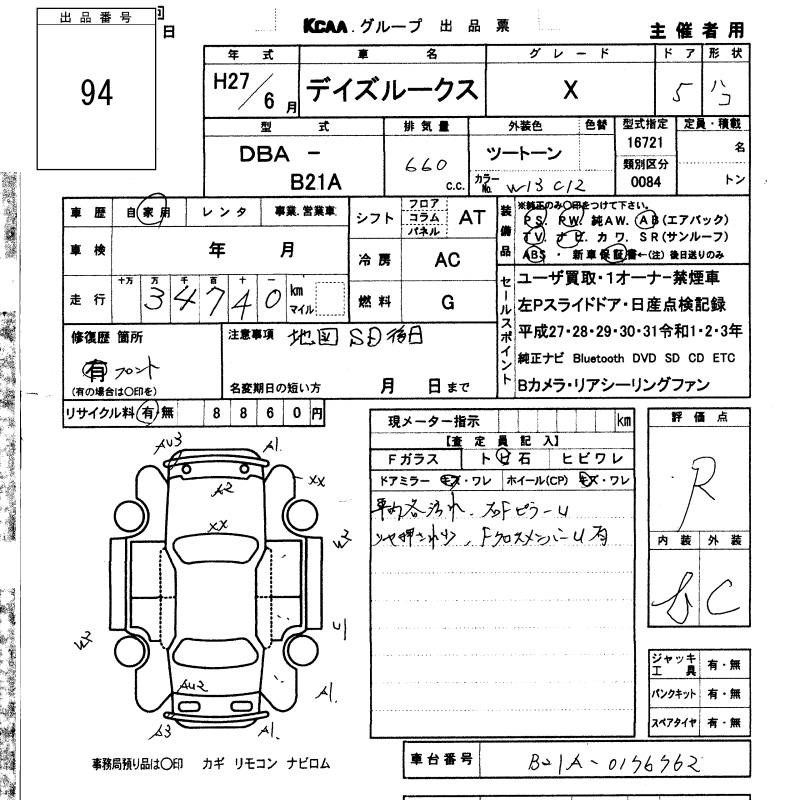 出品番号
94
回
日
KCAA.グループ 出品票
主催者用
年式 車名 グレード ドア 形状
H27/6月 デイズルークス X 5 ハコ
型式 排気量 外装色 色替 型式指定 定員・積載
DBA - B21A 660 c.c. ツートーン 16721 名
カラーNo. W13 C12 類別区分 0084 トン
車歴 自家用 レンタ 事業.営業車
車検 年 月
走行 十万 万 千 百 十 km マイル
3 4 7 4 0
シフト フロア コラム パネル AT
冷房 AC
燃料 G
装備品
※純正のみ○印をつけて下さい。
PS. PW. 純AW. AB(エアバック)
TV. ナビ. カワ. SR(サンルーフ)
ABS・新車保証書←(注)後日送りのみ
セールスポイント
ユーザ買取・1オーナー禁煙車
左Pスライドドア・日産点検記録
平成27・28・29・30・31令和1・2・3年
純正ナビ Bluetooth DVD SD CD ETC
Bカメラ・リアシーリングファン
修復歴 箇所
有 フロント
(有の場合は○印を)
注意事項 地図SD後日
名変期日の短い方 月 日まで
リサイクル料 有 無 8860円
現メーター指示 km
【査定員記入】
Fガラス トビ石 ヒビワレ
ドアミラー キズ・ワレ ホイール(CP) キズ・ワレ
右FピラーU
FクロスメンバーU有
評価点
R
内装 外装
C
AU3 A1.
A2 XX
XX
U2
U1
U2
AU2 A1.
A3 A1.
ジャッキ工具 有・無
パンクキット 有・無
スペアタイヤ 有・無
事務局預り品は○印 カギ リモコン ナビロム
車台番号 B21A-0196962